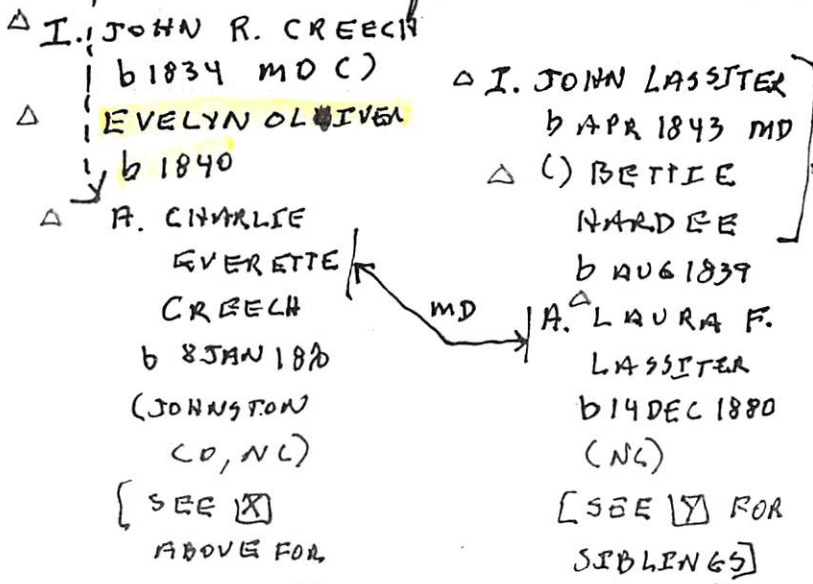 I. JOHN R. CREECH
b 1834 MD ()
EVELYN OLIVER
b 1840
A. CHARLIE
EVERETTE
CREECH
b 8 JAN
(JOHNSTON
CO, NC)
[SEE X
ABOVE FOR
MD
I. JOHN LASSITER
b APR 1843 MD
() BETTIE
HARDEE
b AUG 1839
A. LAURA F.
LASSITER
b 14 DEC 1880
(NC)
[SEE Y FOR
SIBLINGS]